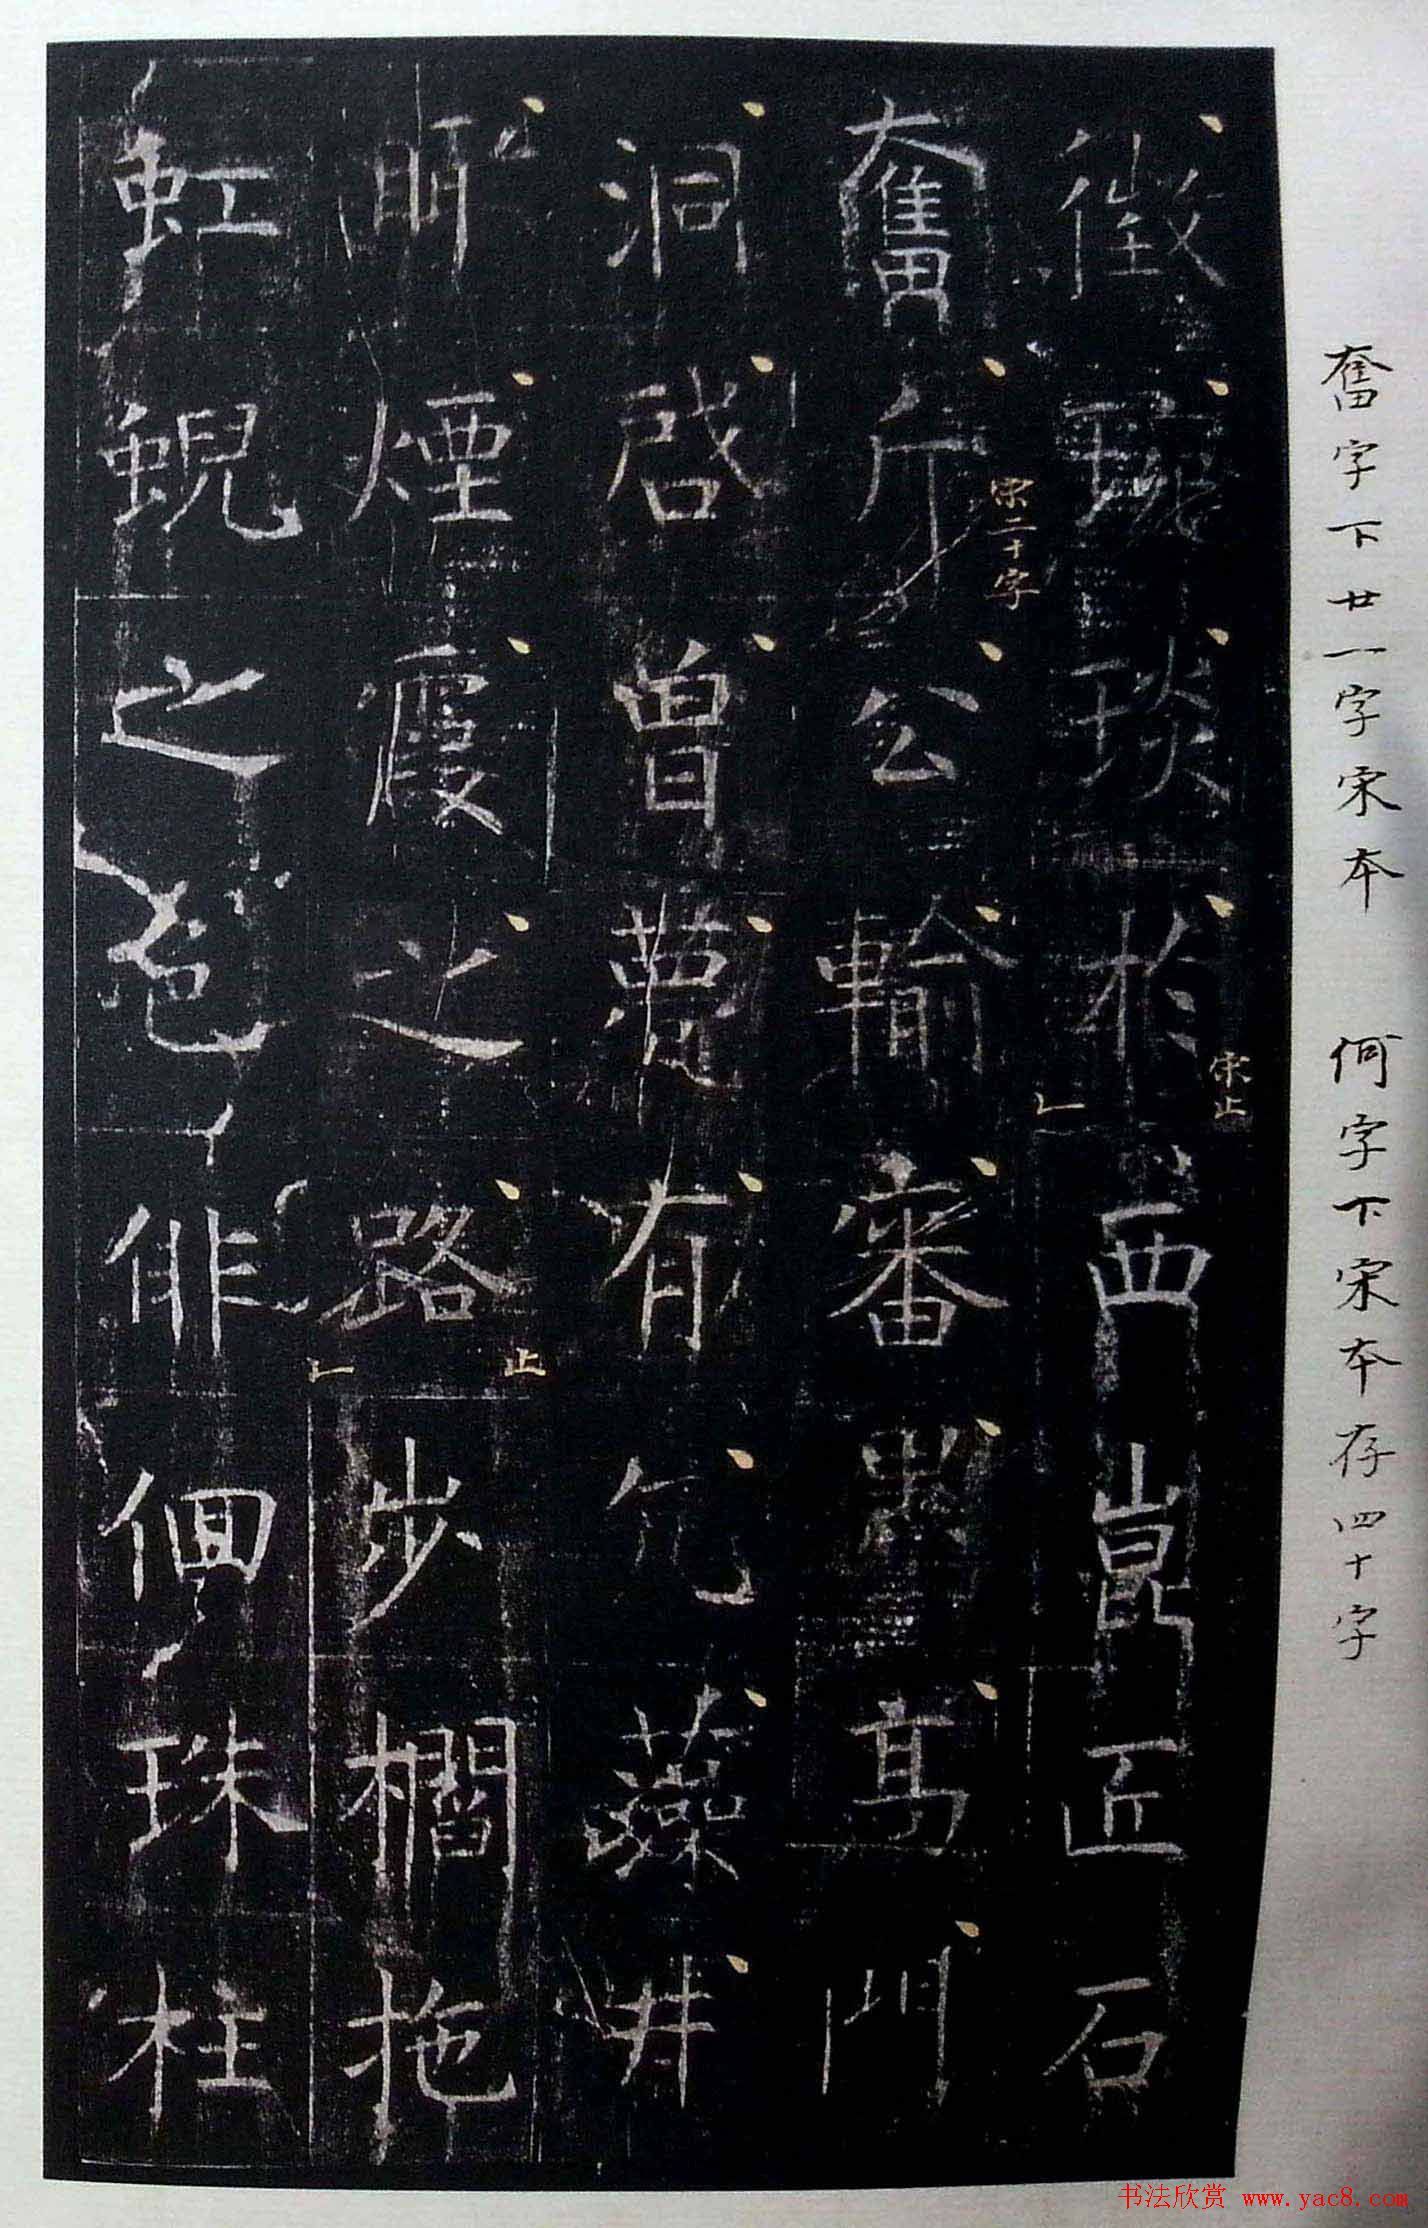 奮字下廿一字宋本 何字下宋本存四十字
徵琬琰於西崑匠石
宋止
奮斤公輸審墨高門
宋二十字
洞啓曾甍有仡藻井
昈煙霞之路步櫩拖
止
虹蜺之色俳佪珠柱
书法欣赏 www.yac8.com